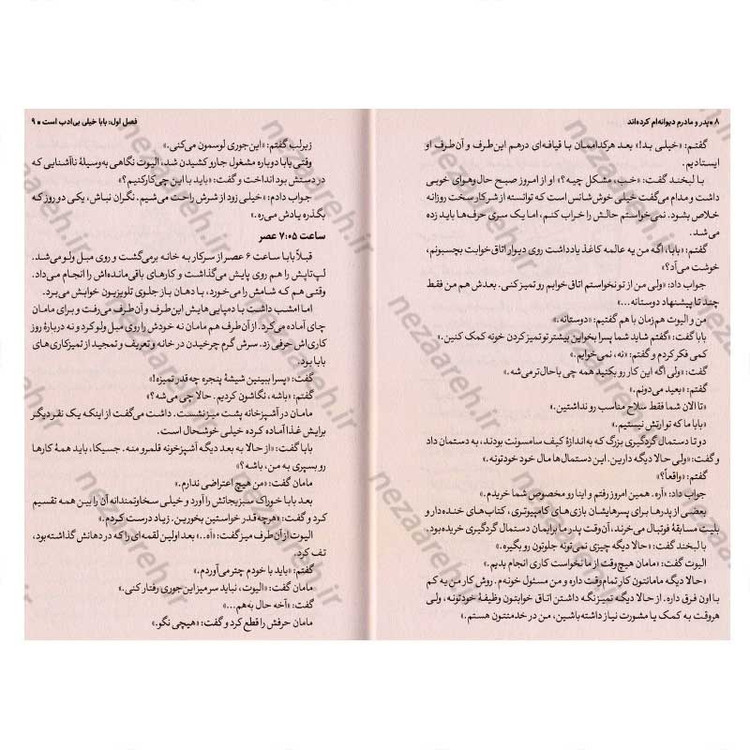 ۸ • پدر و مادرم دیوانه‌ام کرده‌اند
گفتم: «خیلی بد!» بعد هرکداممان با قیافه‌ای درهم این‌طرف و آن‌طرف او
ایستادیم.
با لبخند گفت: «خب، مشکل چیه؟» او از امروز صبح حال‌وهوای خوبی
داشت و مدام می‌گفت خیلی خوش‌شانس است که توانسته از شر کار سخت روزانه
خلاص بشود. نمی‌خواستم حالش را خراب کنم، اما یک سری حرف‌ها باید زده
می‌شد.
گفتم: «بابا، اگه من یه عالمه کاغذ یادداشت روی دیوار اتاق‌خوابت بچسبونم،
خوشت می‌آد؟»
جواب داد: «ولی من از تو نخواستم اتاق‌خوابم رو تمیز کنی. بعدش هم من فقط
چند تا پیشنهاد دوستانه...»
من و الیوت هم‌زمان با هم گفتیم: «دوستانه.»
بابا گفت: «گفتم شاید شما پسرا بخواین بیشتر تو تمیز کردن خونه کمک کنین.»
کمی فکر کردم و گفتم: «نه، نمی‌خوایم.»
گفت: «ولی اگه این کار رو بکنید همه چی باحال‌تر می‌شه.»
گفتم: «بعید می‌دونم.»
«تا الان شما فقط سلاح مناسب رو نداشتین.»
«بابا ما که تو ارتش نیستیم.»
دو تا دستمال گردگیری بزرگ که به‌اندازهٔ کیف سامسونت بودند، به دستمان داد
و گفت: «ولی حالا دیگه دارین. این دستمال‌ها مال خود خودتونه.»
گفتم: «واقعاً؟»
جواب داد: «آره. همین امروز رفتم و اینا رو مخصوص شما خریدم.»
بعضی از پدرها برای پسرهایشان بازی‌های کامپیوتری، کتاب‌های خنده‌دار و
بلیت مسابقهٔ فوتبال می‌خرند، آن‌وقت پدر ما برایمان دستمال گردگیری خریده بود.
با لبخند گفت: «حالا دیگه چیزی نمی‌تونه جلوتون رو بگیره.»
الیوت گفت: «مامان هیچ‌وقت از ما نخواست کاری انجام بدیم.»
«حالا دیگه مامانتون کار تمام‌وقت داره و من مسئول خونه‌م. روش کار من یه کم
با اون فرق داره. از حالا دیگه تمیز نگه داشتن اتاق خوابتون وظیفهٔ خودتونه، ولی
هروقت به کمک یا مشورت نیاز داشته باشین، من در خدمتتون هستم.»
فصل اول: بابا خیلی بی‌ادب است • ۹
زیر لب گفتم: «این‌جوری لوسمون می‌کنی.»
وقتی بابا دوباره مشغول جارو کشیدن شد، الیوت نگاهی به وسیلهٔ ناآشنایی که
در دستش بود انداخت و گفت: «باید با این چی‌کار کنیم؟»
جواب دادم: «خیلی زود از شرش راحت می‌شیم. نگران نباش، یکی دو روز که
بگذره یادش می‌ره.»
ساعت ۷:۰۵ عصر
قبلاً بابا ساعت ۶ عصر از سر کار به خانه برمی‌گشت و روی مبل ولو می‌شد.
لپ‌تاپش را هم روی پایش می‌گذاشت و کارهای باقی‌مانده‌اش را انجام می‌داد.
وقتی هم که شامش را می‌خورد، با دهان باز جلوی تلویزیون خوابش می‌برد.
اما امشب داشت با دمپایی‌هایش این‌طرف و آن‌طرف می‌رفت و برای مامان
چای آماده می‌کرد. از آن‌طرف هم مامان نه خودش را روی مبل ولو کرد و نه دربارهٔ روز
کاری‌اش حرفی زد. سرش گرم چرخیدن در خانه و تعریف و تمجید از تمیزکاری‌های
بابا بود.
گفت: «پسرا ببینین شیشهٔ پنجره چه‌قدر تمیزه!»
گفتم: «باشه، نگاشون کردیم. حالا چی می‌شه؟»
مامان در آشپزخانه پشت میز نشست. داشت می‌گفت از اینکه یک نفر دیگر
برایش غذا آماده کرده خیلی خوشحال است.
بابا گفت: «از حالا به بعد دیگه آشپزخونه قلمرو منه. جسیکا، باید همهٔ کارها
رو بسپری به من، باشه؟»
مامان گفت: «من هیچ اعتراضی ندارم.»
بعد بابا خوراک سبزیجاتش را آورد و خیلی سخاوتمندانه آن را بین همه تقسیم
کرد و گفت: «هرچه‌قدر خواستین بخورین. زیاد درست کردم.»
الیوت از آن طرف میز گفت: «آه..» بعد اولین لقمه‌ای را که در دهانش گذاشته بود،
تف کرد.
گفتم: «باید با خودم چتر می‌آوردم.»
مامان گفت: «الیوت، نباید سر میز این‌جوری رفتار کنی.»
گفت: «آخه حال به‌هم...»
مامان حرفش را قطع کرد و گفت: «هیچی نگو.»
nezaareh.ir